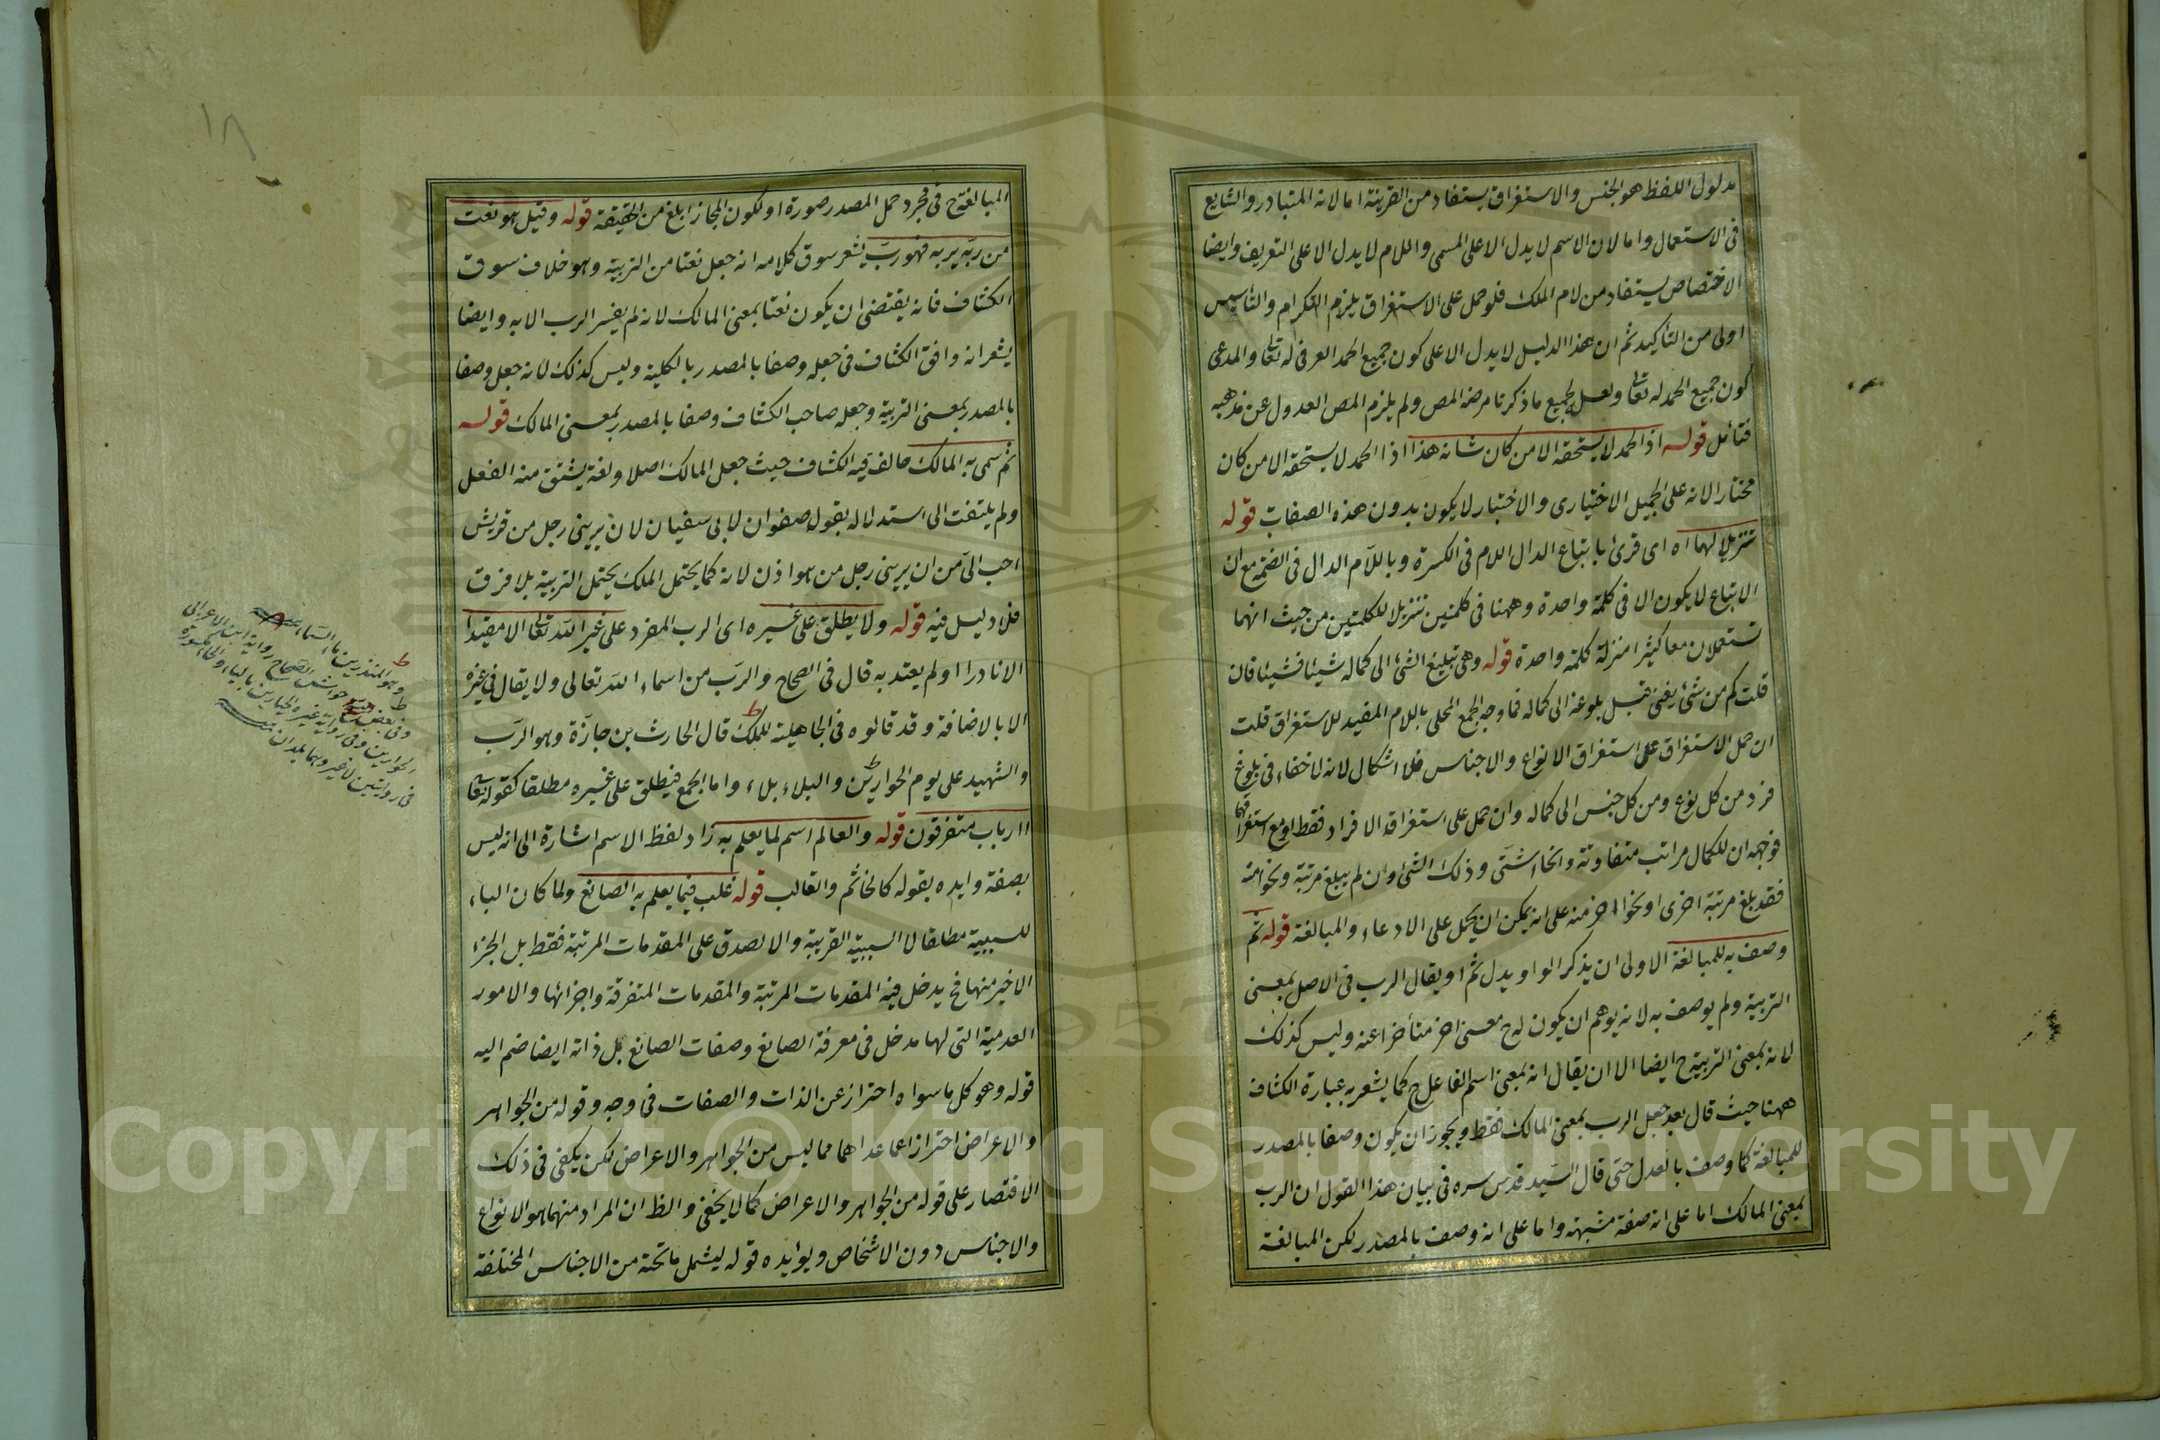 مدلول اللفظ هو الجنس والاستغراق يستفاد من القرينة اما لانه المتبادر والشايع
فى الاستعمال واما لان الاسم لا يدل الا على المسمى واللام لا يدل الا على التعريف وايضا
الاختصاص يستفاد من لام الملك فلو حمل على الاستغراق يلزم التكرام والتاسيس
اولى من التأكيد ثم ان هذا الدليل لا يدل الا على كون جميع الحمد العرفى له تعالى والمدعى
كون جميع الحمد له تعالى ولعل لجميع ما ذكرنا مرضه المص ولم يلزم المص العدول عن مذهبه
فتائل قوله اذ الحمد لا يستحقه الا من كان شانه هذا اذا الحمد لا يستحقه الا من كان
مختارا لانه على الجميل الاختيارى والاختيار لا يكون بدون هذه الصفات قوله
تنزيلا لهما اه اى قرئ باتباع الدال اللام فى الكسرة وباللام الدال فى الضمة مع ان
الاتباع لا يكون الا فى كلمة واحدة وههنا فى كلمتين تنزيلا للكلمتين من حيث انهما
تستعملان معا كثيرا منزلة كلمة واحدة قوله وهى تبليغ الشئ الى كماله شيئا فشيئا فان
قلت كم من شئ يفنى قبل بلوغه الى كماله فما وجه الجمع المحلى باللام المفيد للاستغراق قلت
ان حمل الاستغراق على استغراق الانواع والاجناس فلا اشكال لانه لا خفاء فى بلوغ
فرد من كل نوع ومن كل جنس الى كماله وان حمل على استغراقه الافراد فقط او مع استغراقها
فوجهه ان للكمال مراتب متفاوتة وانحاء شتى وذلك الشئ وان لم يبلغ مرتبة ونحوا منه
فقد بلغ مرتبة اخرى او نحوا اخر منه على انه يمكن ان يحمل على الادعاء والمبالغة قوله ثم
وصف به للمبالغة الاولى ان يذكر الواو بدل ثم او يقال الرب فى الاصل بمعنى
التربية ولم يوصف به لانه يوهم ان يكون له ح معنى اخر متأخرا عنه وليس كذلك
لانه بمعنى التربية ح ايضا الا ان يقال انه بمعنى اسم الفاعل ح كما يشعر به عبارة الكشاف
ههنا حيث قال بعد جعل الرب بمعنى المالك فقط ويجوز ان يكون وصفا بالمصدر
للمبالغة كما وصف بالعدل حتى قال السيد قدس سره فى بيان هذا القول ان الرب
بمعنى المالك اما على انه صفة مشبهة واما على انه وصف بالمصدر لكن المبالغة
١٨
المبالغة ح فى مجرد حمل المصدر صورة او لكون المجاز ابلغ من الحقيقة قوله وقيل هو نعت
من ربه يربه فهو رب يشعر سوق كلامه انه جعل نعتا من التربية وهو خلاف سوق
الكشاف فانه يقتضى ان يكون نعتا بمعنى المالك لانه لم يفسر الرب الا به وايضا
يشعر انه وافق الكشاف فى جعله وصفا بالمصدر بالكلية وليس كذلك لانه جعل وصفا
بالمصدر بمعنى التربية وجعله صاحب الكشاف وصفا بالمصدر بمعنى المالك قوله
ثم سمى به المالك خالف فيه الكشاف حيث جعل المالك اصلا ولغة يشتق منه الفعل
ولم يلتفت الى استدلاله بقول صفوان لابى سفيان لان يربنى رجل من قريش
احب الى من ان يربنى رجل من هوازن لانه كما يحتمل الملك يحتمل التربية بلا فرق
فلا دليل فيه قوله ولا يطلق على غيره اى الرب المفرد على غير الله تعالى الا مقيدا
الا نادرا ولم يعتد به قال فى الصحاح والرب من اسماء الله تعالى ولا يقال فى غيره
الا بالاضافة وقد قالوه فى الجاهلية للملك قال الحارث بن حلزة وهو الرب
والشهيد على يوم الحوارين والبلاء بلاء واما الجمع فيطلق على غيره مطلقا كقوله تعالى
اارباب متفرقون قوله والعالم اسم لما يعلم به زاد لفظ الاسم اشارة الى انه ليس
بصفة وايده بقوله كالخاتم والقالب قوله غلب فيما يعلم به الصانع ولما كان الباء
للسببية مطلقا لا السببية القريبة والا لصدق على المقدمات المرتبة فقط بل الجزء
الاخير منها فح يدخل فيه المقدمات المرتبة والمقدمات المتفرقة واجزائها والامور
العدمية التى لها مدخل فى معرفة الصانع وصفات الصانع بل ذاته ايضا ضم اليه
قوله وهو كل ما سواه احتراز عن الذات والصفات فى وجه وقوله من الجواهر
والاعراض احترازا عما عداهما مما ليس من الجواهر والاعراض لكن يكفى فى ذلك
الاقتصار على قوله من الجواهر والاعراض كما لا يخفى والظ ان المراد منهما هو الانواع
والاجناس دون الاشخاص ويوايده قوله ليشمل ما تحته من الاجناس المختلفة
وهو المنذر بن ماء السماء
وفى بعض حواشى الصحاح رواية ابن الاعرابى
الحوارين وفى رواية غيره الحيارين بالياء والحاء مكسورة
فى روايتين لا غير وهما بلدان
Copyright © King Saud University
1957